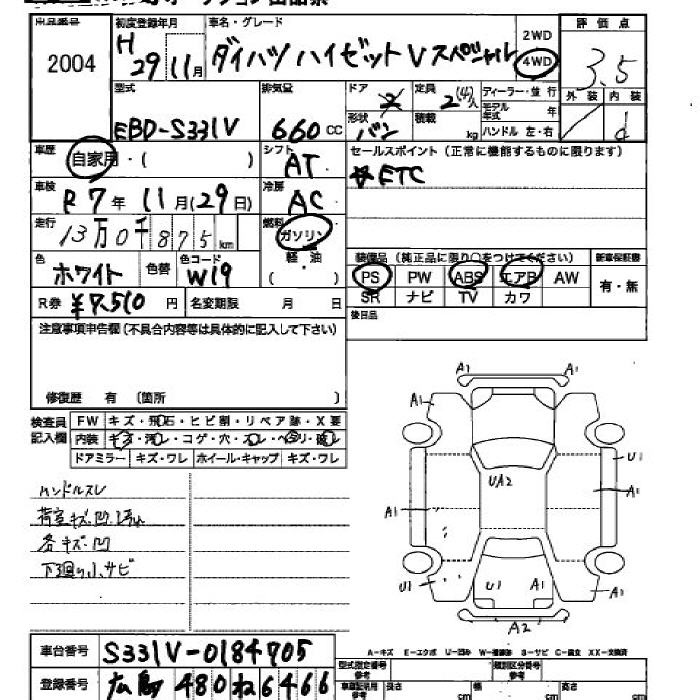 出品番号 初度登録年月 車名・グレード 評価点
2004 H29 11月 ダイハツ ハイゼットVスペシャル 2WD 4WD 3.5
外装 内装 d
型式 排気量 ドア 定員 ディーラー・並行
EBD-S331V 660cc 2(4)人 モデル年式 年
形状 バン 積載 kg ハンドル 左・右
車歴 自家用・( ) シフト AT セールスポイント(正常に機能するものに限ります)
☆ETC
車検 R7年11月(29日) 冷房 AC
走行 13万0千875km 燃料 ガソリン 軽油 ( )
色 ホワイト 色替 色コード W19
装備品(純正品に限り○をつけてください) 新車保証書
PS PW ABS エアB AW 有・無
SR ナビ TV カワ
R券 ¥7,510円 名変期限 月 日
後日品
注意事項申告欄(不具合内容等は具体的に記入して下さい)
修復歴 有 (箇所 )
検査員記入欄 FW キズ・飛石・ヒビ割・リペア跡・X要
内装 キズ・汚レ・コゲ・穴・スレ・ヘタリ・破レ
ドアミラー キズ・ワレ ホイール・キャップ キズ・ワレ
ハンドルスレ
荷室キズ.凹
各キズ.凹
下廻り小サビ
A1 A1
A1
U1
UA2
A1 A1
U1 U1 A1 A1
A2
A-キズ E-エクボ U-凹み W-補修跡 S-サビ C-腐食 XX-交換済
車台番号 S331V-0184705
登録番号 広島 480 ね 6466
型式指定番号 参考 類別区分番号 参考
車庫証明用 参考 長さ cm 幅 cm 高さ cm